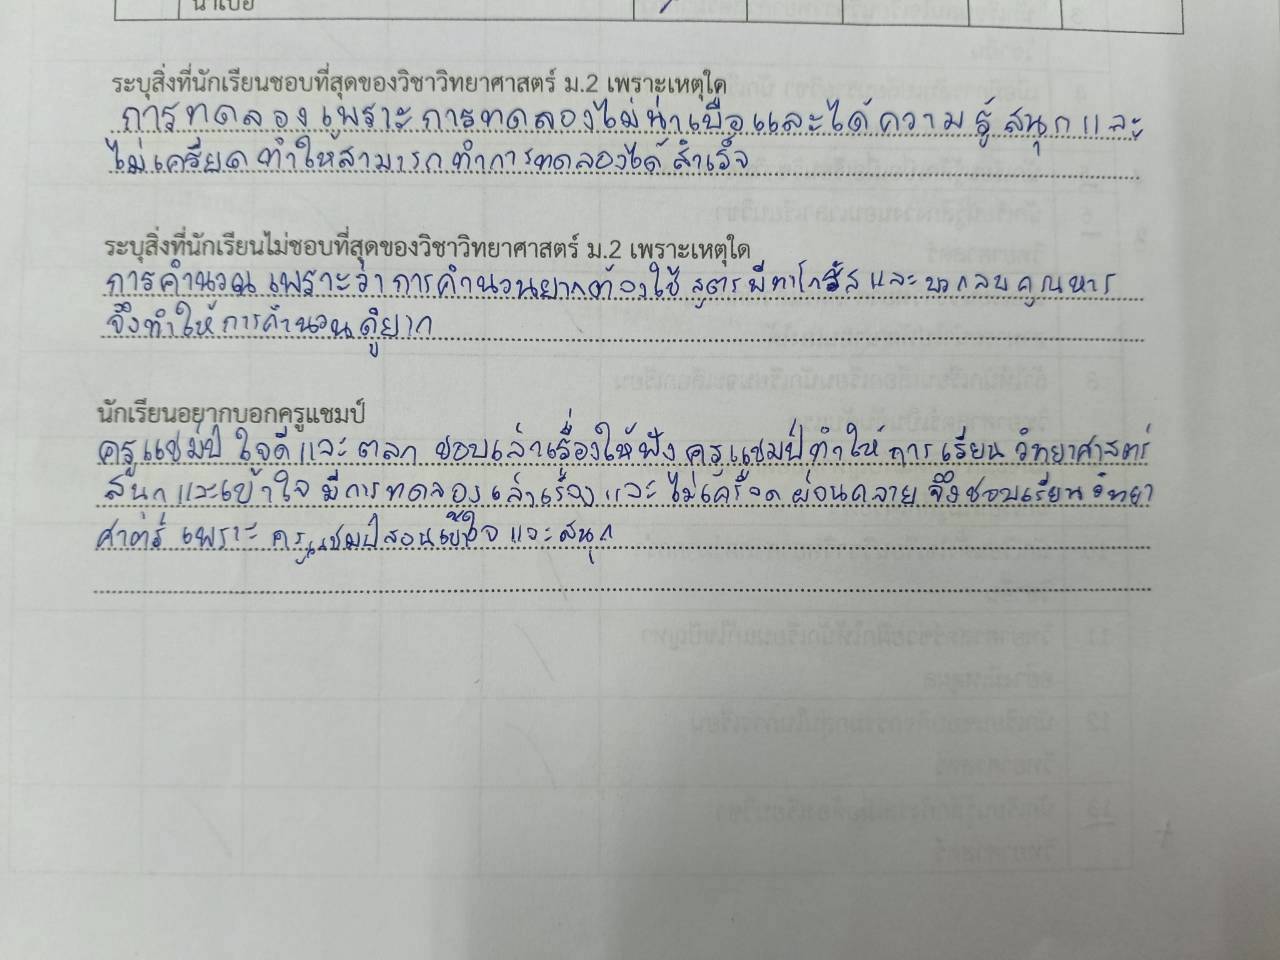 น่าเบื่อ
ระบุสิ่งที่นักเรียนชอบที่สุดของวิชาวิทยาศาสตร์ ม.2 เพราะเหตุใด
การทดลองเพราะการทดลองไม่น่าเบื่อและได้ความรู้สนุกและ
ไม่เครียดทำให้สามารถทำการทดลองได้สำเร็จ
ระบุสิ่งที่นักเรียนไม่ชอบที่สุดของวิชาวิทยาศาสตร์ ม.2 เพราะเหตุใด
การคำนวณ เพราะว่า การคำนวนยากต้องใช้ สูตรพีทาโกรัส และ บวกลบคูณหาร
จึงทำให้การคำนวนดูยาก
นักเรียนอยากบอกครูแชมป์
ครูแชมป์ ใจดีและ ตลก ชอบเล่าเรื่องให้ฟัง ครูแชมป์ทำให้ การเรียน วิทยาศาสตร์
สนุกและเข้าใจ มีการทดลอง เล่าเรื่อง และ ไม่เครียด ผ่อนคลาย จึงชอบเรียน วิทยา
ศาตร์ เพราะ ครูแชมป์สอนเข้าใจ และ สนุก